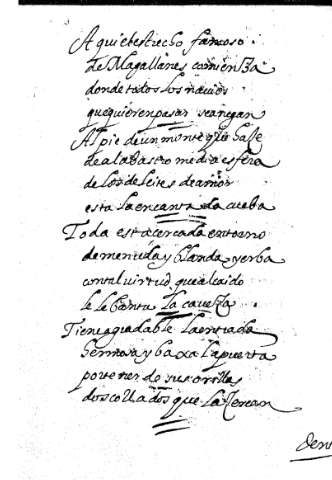 Aqui el estrecho famoso
de Magallanes comienza
donde todos los navios
que quieren pasar se anegan
Al pie de un monte que haze
de alabastro media esfera
de los deleites de amor
esta la encantada cueba
Toda esta cercada entorno
de menuda y blanda yerba
con tal virtud que al caido
le lebanta la caveza
Tiene agradable la entrada
hermosa y baxa la puerta
por tener de sus orillas
dos collados que la cercan